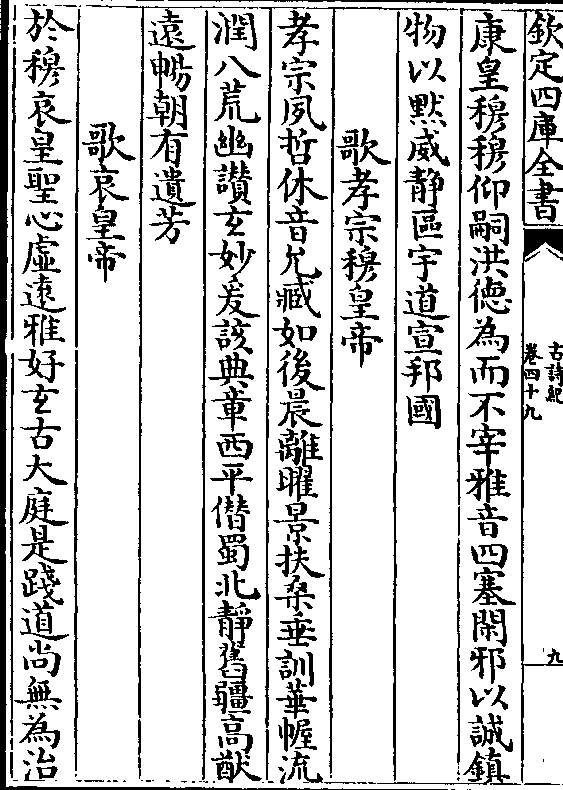 欽定四庫全書
古詩紀
卷四十九
九
康皇穆穆仰嗣洪徳為而不宰雅音四塞閑邪以誠鎮
物以黙威静區宇道宣邦國
歌孝宗穆皇帝
孝宗夙哲休音允臧如彼晨離曜景扶桑垂訓華幄流
潤八荒幽讃玄妙爰該典章西平僭蜀北靜舊疆高猷
遠暢朝有遺芳
歌哀皇帝
於穆哀皇聖心虛遠雅好玄古大庭是踐道尚無為治